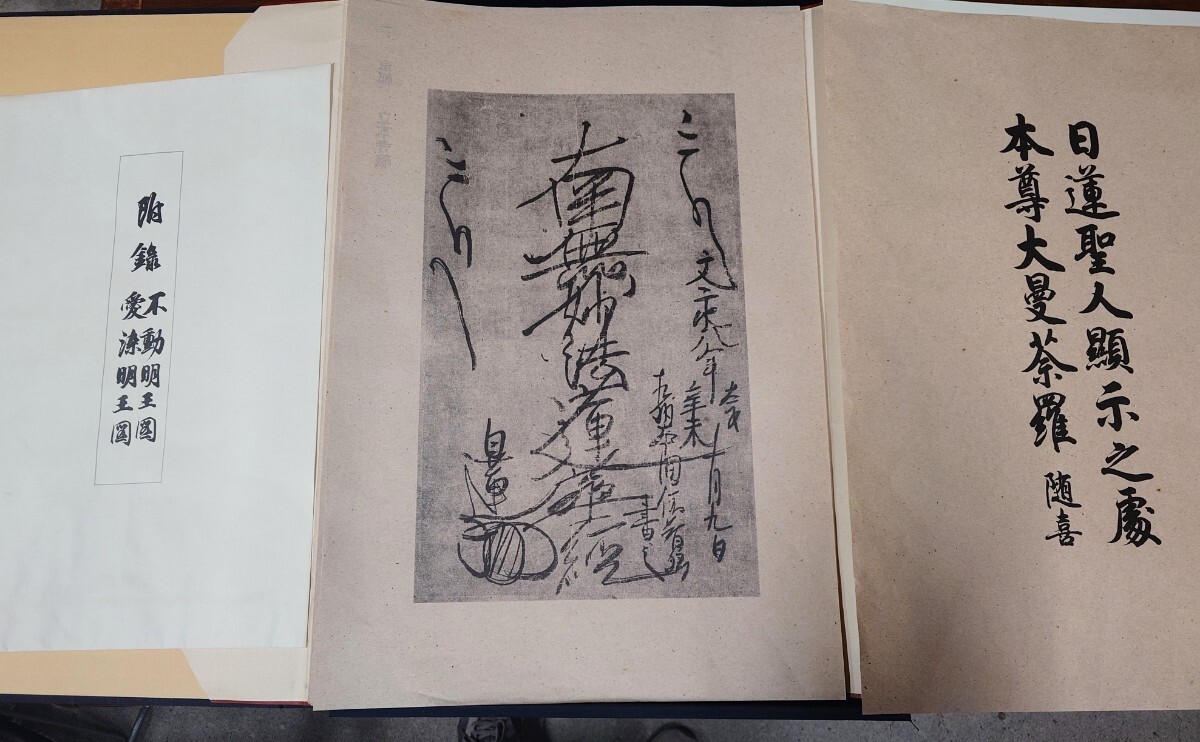 日蓮聖人顯示之處
本尊大曼荼羅 随喜
文永八年
太才
辛未
十月九日
相州本間依智郷
書之
南無妙法蓮華経
日蓮
附錄
不動明王圖
愛染明王圖